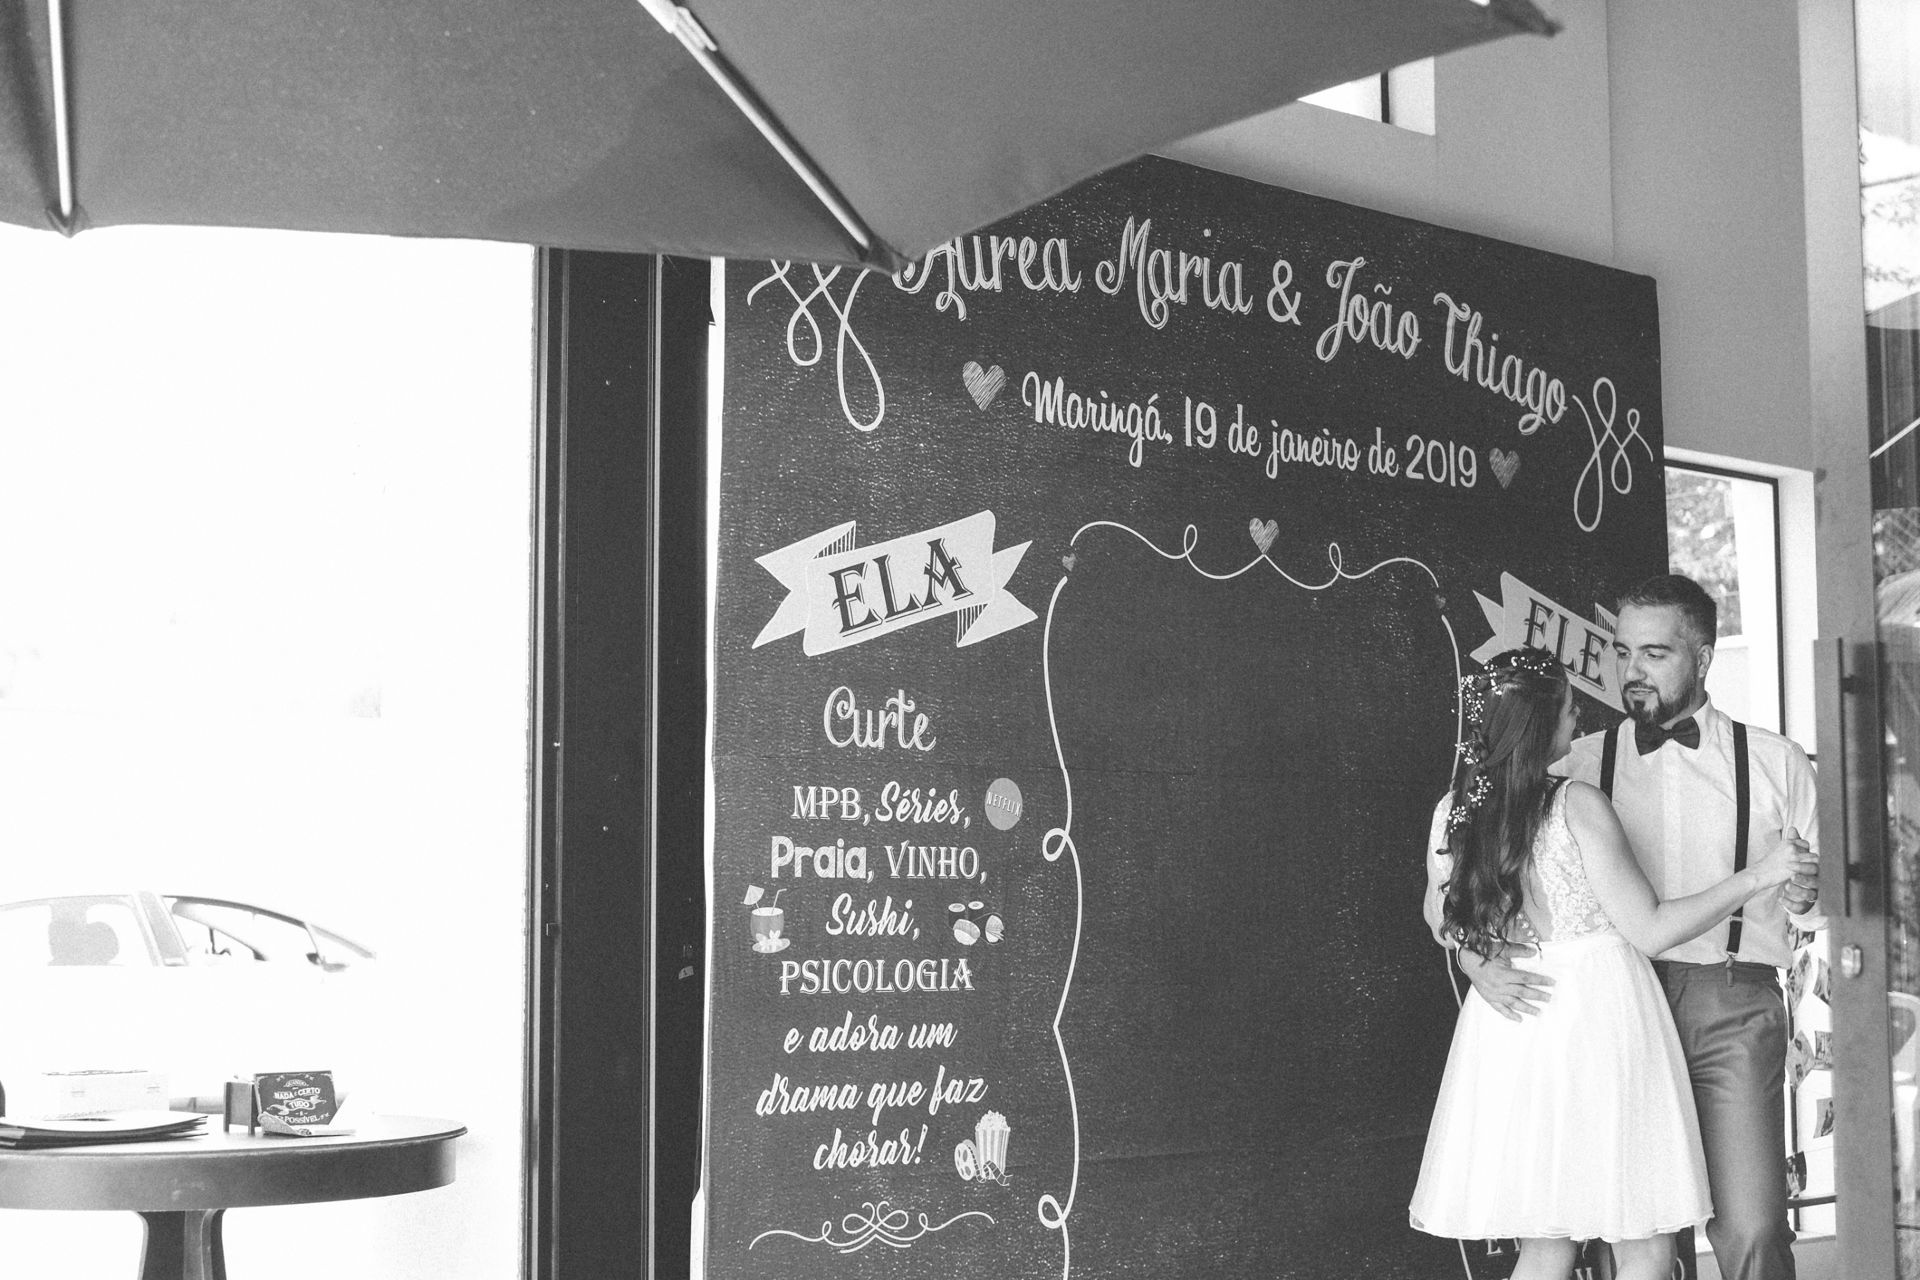 Áurea Maria & João Thiago
Maringá, 19 de janeiro de 2019
ELA
Curte
MPB, Séries,
NETFLIX
Praia, VINHO,
Sushi,
PSICOLOGIA
e adora um
drama que faz
chorar!
ELE
QUANDO
NADA É CERTO
TUDO
É
POSSÍVEL